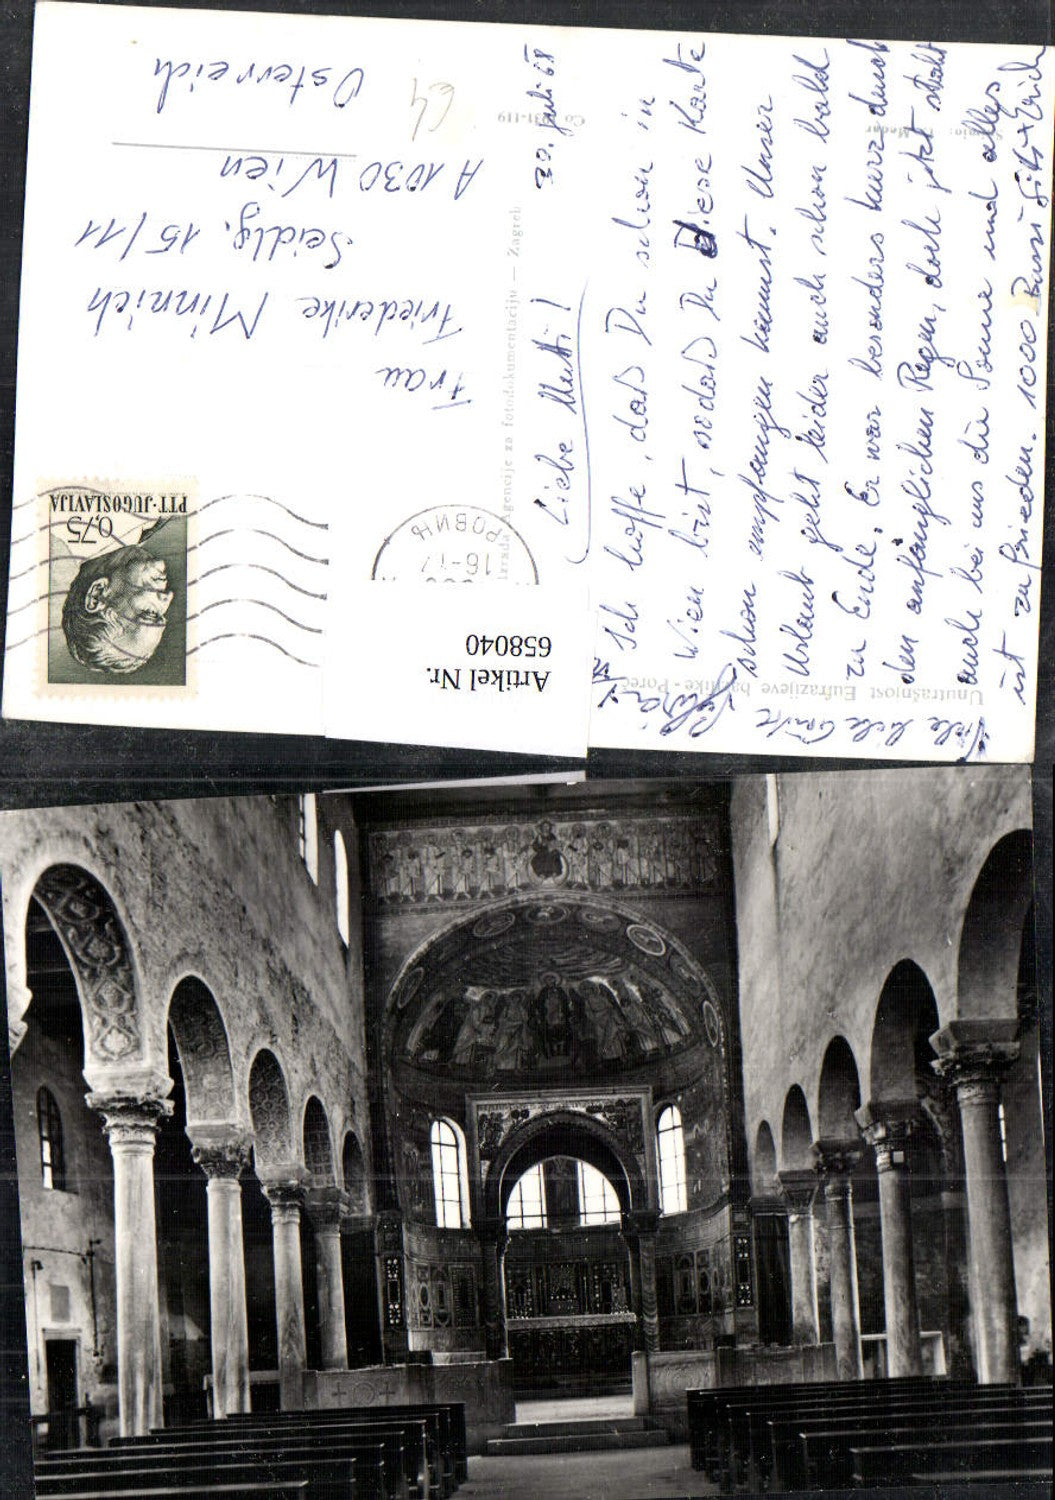 30. Juli 68
Liebe Mutti!
Ich hoffe, daß Du schon in
Wien bist, sodaß Du Diese Karte
schon empfangen kannst. Unser
Urlaub geht leider auch schon bald
zu Ende. Er war besonders kurz durch
den anfänglichen Regen, doch jetzt strahlt
auch bei uns die Sonne und alles
ist zufrieden. 1000 Bussi
Viele liebe Grüße
Frau
Friederike Minnich
Seidlg. 15/11
A 1030 Wien
Österreich
64
PTT·JUGOSLAVIJA
0,75
РОВИЊ
Izrada Agencije za fotodokumentaciju — Zagreb
Unutrašnjost Eufrazijeve bazilike - Poreč
Artikel Nr.
658040